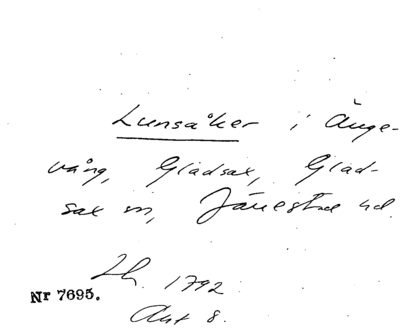 Lunsåker i Änge-
vång, Gladsax, Glad-
sax sn, Järrestad hd.
Lh. 1792
Nr 7695.
Akt 8.